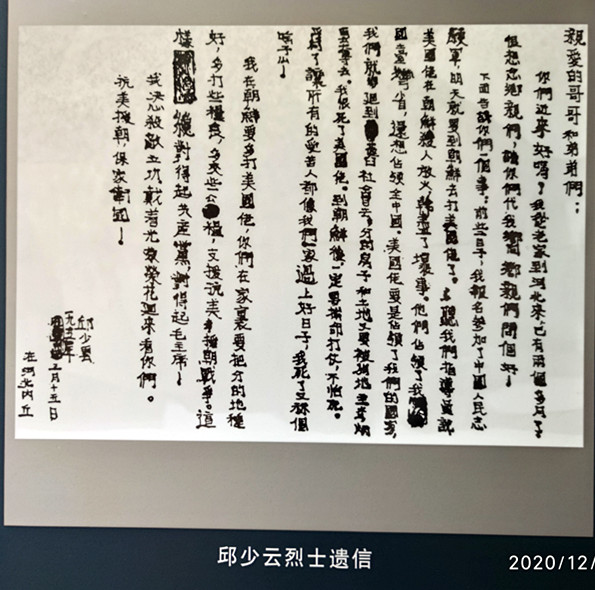 親愛的哥哥和弟弟們：
你們近來好嗎？我從老家到河北來，已有兩個多月了，
很想念鄉親們，請你們代我向鄉親們問個好！
下面告訴你們一個事：前些日子，我報名參加了中國人民志
願軍，明天就要到朝鮮去打美國佬了。聽我們指導員說
美國佬在朝鮮殺人放火，幹盡了壞事。他們佔領了我
國臺灣省，還想佔領全中國。美國佬要是佔領了我們的國家，
我們就要回到舊社會去，分的房子和土地又要被地主
奪去。我恨死了美國佬。到朝鮮後一定要拚命打仗，不怕死。
為了讓所有的受苦人都像我們一家過上好日子，我死了又算個
啥子么！
我在朝鮮要多打美國佬，你們在家裏要把分的地種
好，多打些糧食，多交些公糧，支援抗美援朝戰爭。這
樣對得起共產黨，對得起毛主席！
我決心殺敵立功戴着光榮花回來看你們。
抗美援朝，保家衛國！
邱少雲
一九五一年
三月十五日
在河北內丘
邱少云烈士遗信
2020/12/